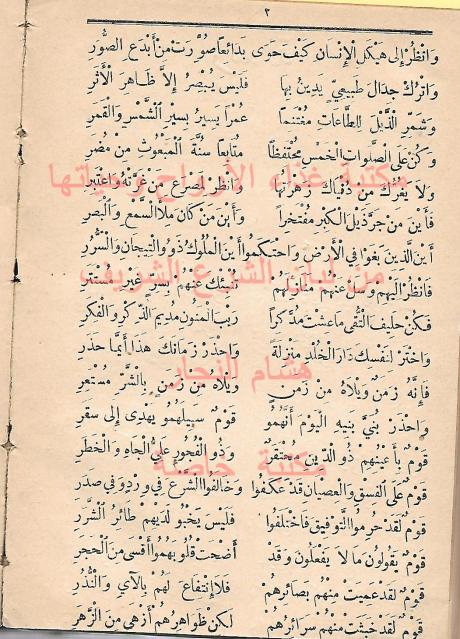 ٢
وَانْظُرْ إِلَى هَيْكَلِ الْإِنْسَانِ كَيْفَ حَوَى بَدَائِعًا صُوِّرَتْ مِنْ أَبْدَعِ الصُّوَرِ
وَاتْرُكْ جِدَالَ طَبِيعِيٍّ يَدِينُ بِهَا فَلَيْسَ يُبْصِرُ إِلَّا ظَاهِرَ الْأَثَرِ
وَشَمِّرِ الذَّيْلَ لِلطَّاعَاتِ مُغْتَنِمًا عُمْرًا يَسِيرُ بِسَيْرِ الشَّمْسِ وَالْقَمَرِ
وَكُنْ عَلَى الصَّلَوَاتِ الْخَمْسِ مُحْتَفِظًا مُتَابِعًا سُنَّةَ الْمَبْعُوثِ مِنْ مُضَرِ
وَلَا يَغُرَّكَ مِنْ دُنْيَاكَ زَهْرَتُهَا وَانْظُرْ لِمَصْرَعِ مَنْ غَرَّتْهُ وَاعْتَبِرِ
فَأَيْنَ مَنْ جَرَّ ذَيْلَ الْكِبْرِ مُفْتَخِرًا وَأَيْنَ مَنْ كَانَ مِلْأَ السَّمْعِ وَالْبَصَرِ
أَيْنَ الَّذِينَ بَغَوْا فِي الْأَرْضِ وَاحْتَكَمُوا أَيْنَ الْمُلُوكُ ذَوُو التِّيجَانِ وَالسُّرُرِ
فَانْظُرْ إِلَيْهِمْ وَسَلْ عَنْهُمْ مَنَازِلَهُمْ تُنْبِيكَ عَنْهُمْ بِسِرٍّ غَيْرِ مُسْتَتِرِ
فَكُنْ حَلِيفَ التُّقَى مَا عِشْتَ مُدَّكِرًا رَيْبَ الْمَنُونِ مُدِيمَ الذِّكْرِ وَالْفِكَرِ
وَاخْتَرْ لِنَفْسِكَ دَارَ الْخُلْدِ مَنْزِلَةً وَاحْذَرْ زَمَانَكَ هَذَا أَيَّمَا حَذَرِ
فَإِنَّهُ زَمَنٌ وَيْلَاهُ مِنْ زَمَنٍ وَيْلَاهُ مِنْ زَمَنٍ بِالشَّرِّ مُسْتَعِرِ
وَاحْذَرْ بُنَيَّ بَنِيهِ الْيَوْمَ أَنَّهُمُو قَوْمٌ سَبِيلُهُمُو يَهْدِي إِلَى سَقَرِ
قَوْمٌ بِأَعْيُنِهِمْ ذُو الدِّينِ مُحْتَقَرٌ وَذُو الْفُجُورِ عَلِيُّ الْجَاهِ وَالْخَطَرِ
قَوْمٌ عَلَى الْفِسْقِ وَالْعِصْيَانِ قَدْ عَكَفُوا وَخَالَفُوا الشَّرْعَ فِي وِرْدٍ وَفِي صَدَرِ
قَوْمٌ لَقَدْ حُرِمُوا التَّوْفِيقَ فَاخْتَلَفُوا فَلَيْسَ يَخْبُو لَدَيْهِمْ طَائِرُ الشَّرَرِ
قَوْمٌ يَقُولُونَ مَا لَا يَفْعَلُونَ وَقَدْ أَضْحَتْ قُلُوبُهُمُو أَقْسَى مِنَ الْحَجَرِ
قَوْمٌ لَقَدْ عَمِيَتْ مِنْهُمْ بَصَائِرُهُمْ فَلَا انْتِفَاعَ لَهُمْ بِالْآيِ وَالنُّذُرِ
قَوْمٌ لَقَدْ خَبُثَتْ مِنْهُمْ سَرَائِرُهُمْ لَكِنْ ظَوَاهِرُهُمْ أَزْهَى مِنَ الزَّهَرِ
مكتبة غذاء الأرواح وحياتها
من لبان الشرع الشريف
هشام النجار
مكتبة خاصة